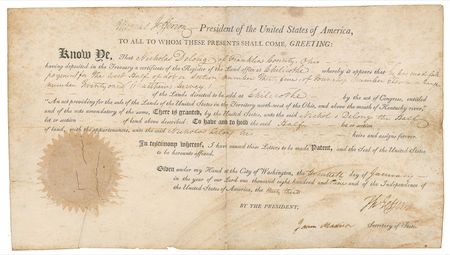 Thomas Jefferson President of the United States of America,
TO ALL TO WHOM THESE PRESENTS SHALL COME, GREETING:
Know Ye, That Nicholas Delong of Franklin County, Ohio
having deposited in the Treasury a certificate of the Register of the Land Office at Chilicothe whereby it appears that he has made full
payment for the East Half of Lot or Section number
number twenty one
of the Lands directed to be sold at Chilicothe by the act of Congress, entitled
"An act providing for the sale of the Lands of the United States in the Territory north-west of the Ohio, and above the mouth of Kentucky river,"
and of the acts amendatory of the same, There is granted, by the United States, unto the said Nichols Delong the
lot or section of land above described: To have and to hold the said Half
lot or section
of land, with the appurtenances, unto the said Nicholas Delong his heirs and assigns forever.
In testimony whereof, I have caused these Letters to be made Patent, and the Seal of the United States
to be hereunto affixed.
Given under my Hand at the City of Washington, the twentieth day of January
in the year of our Lord one thousand eight hundred and and of the Independence of
the United States of America, the thirty third
BY THE PRESIDENT,
Th: Jefferson
James Madison Secretary of State.